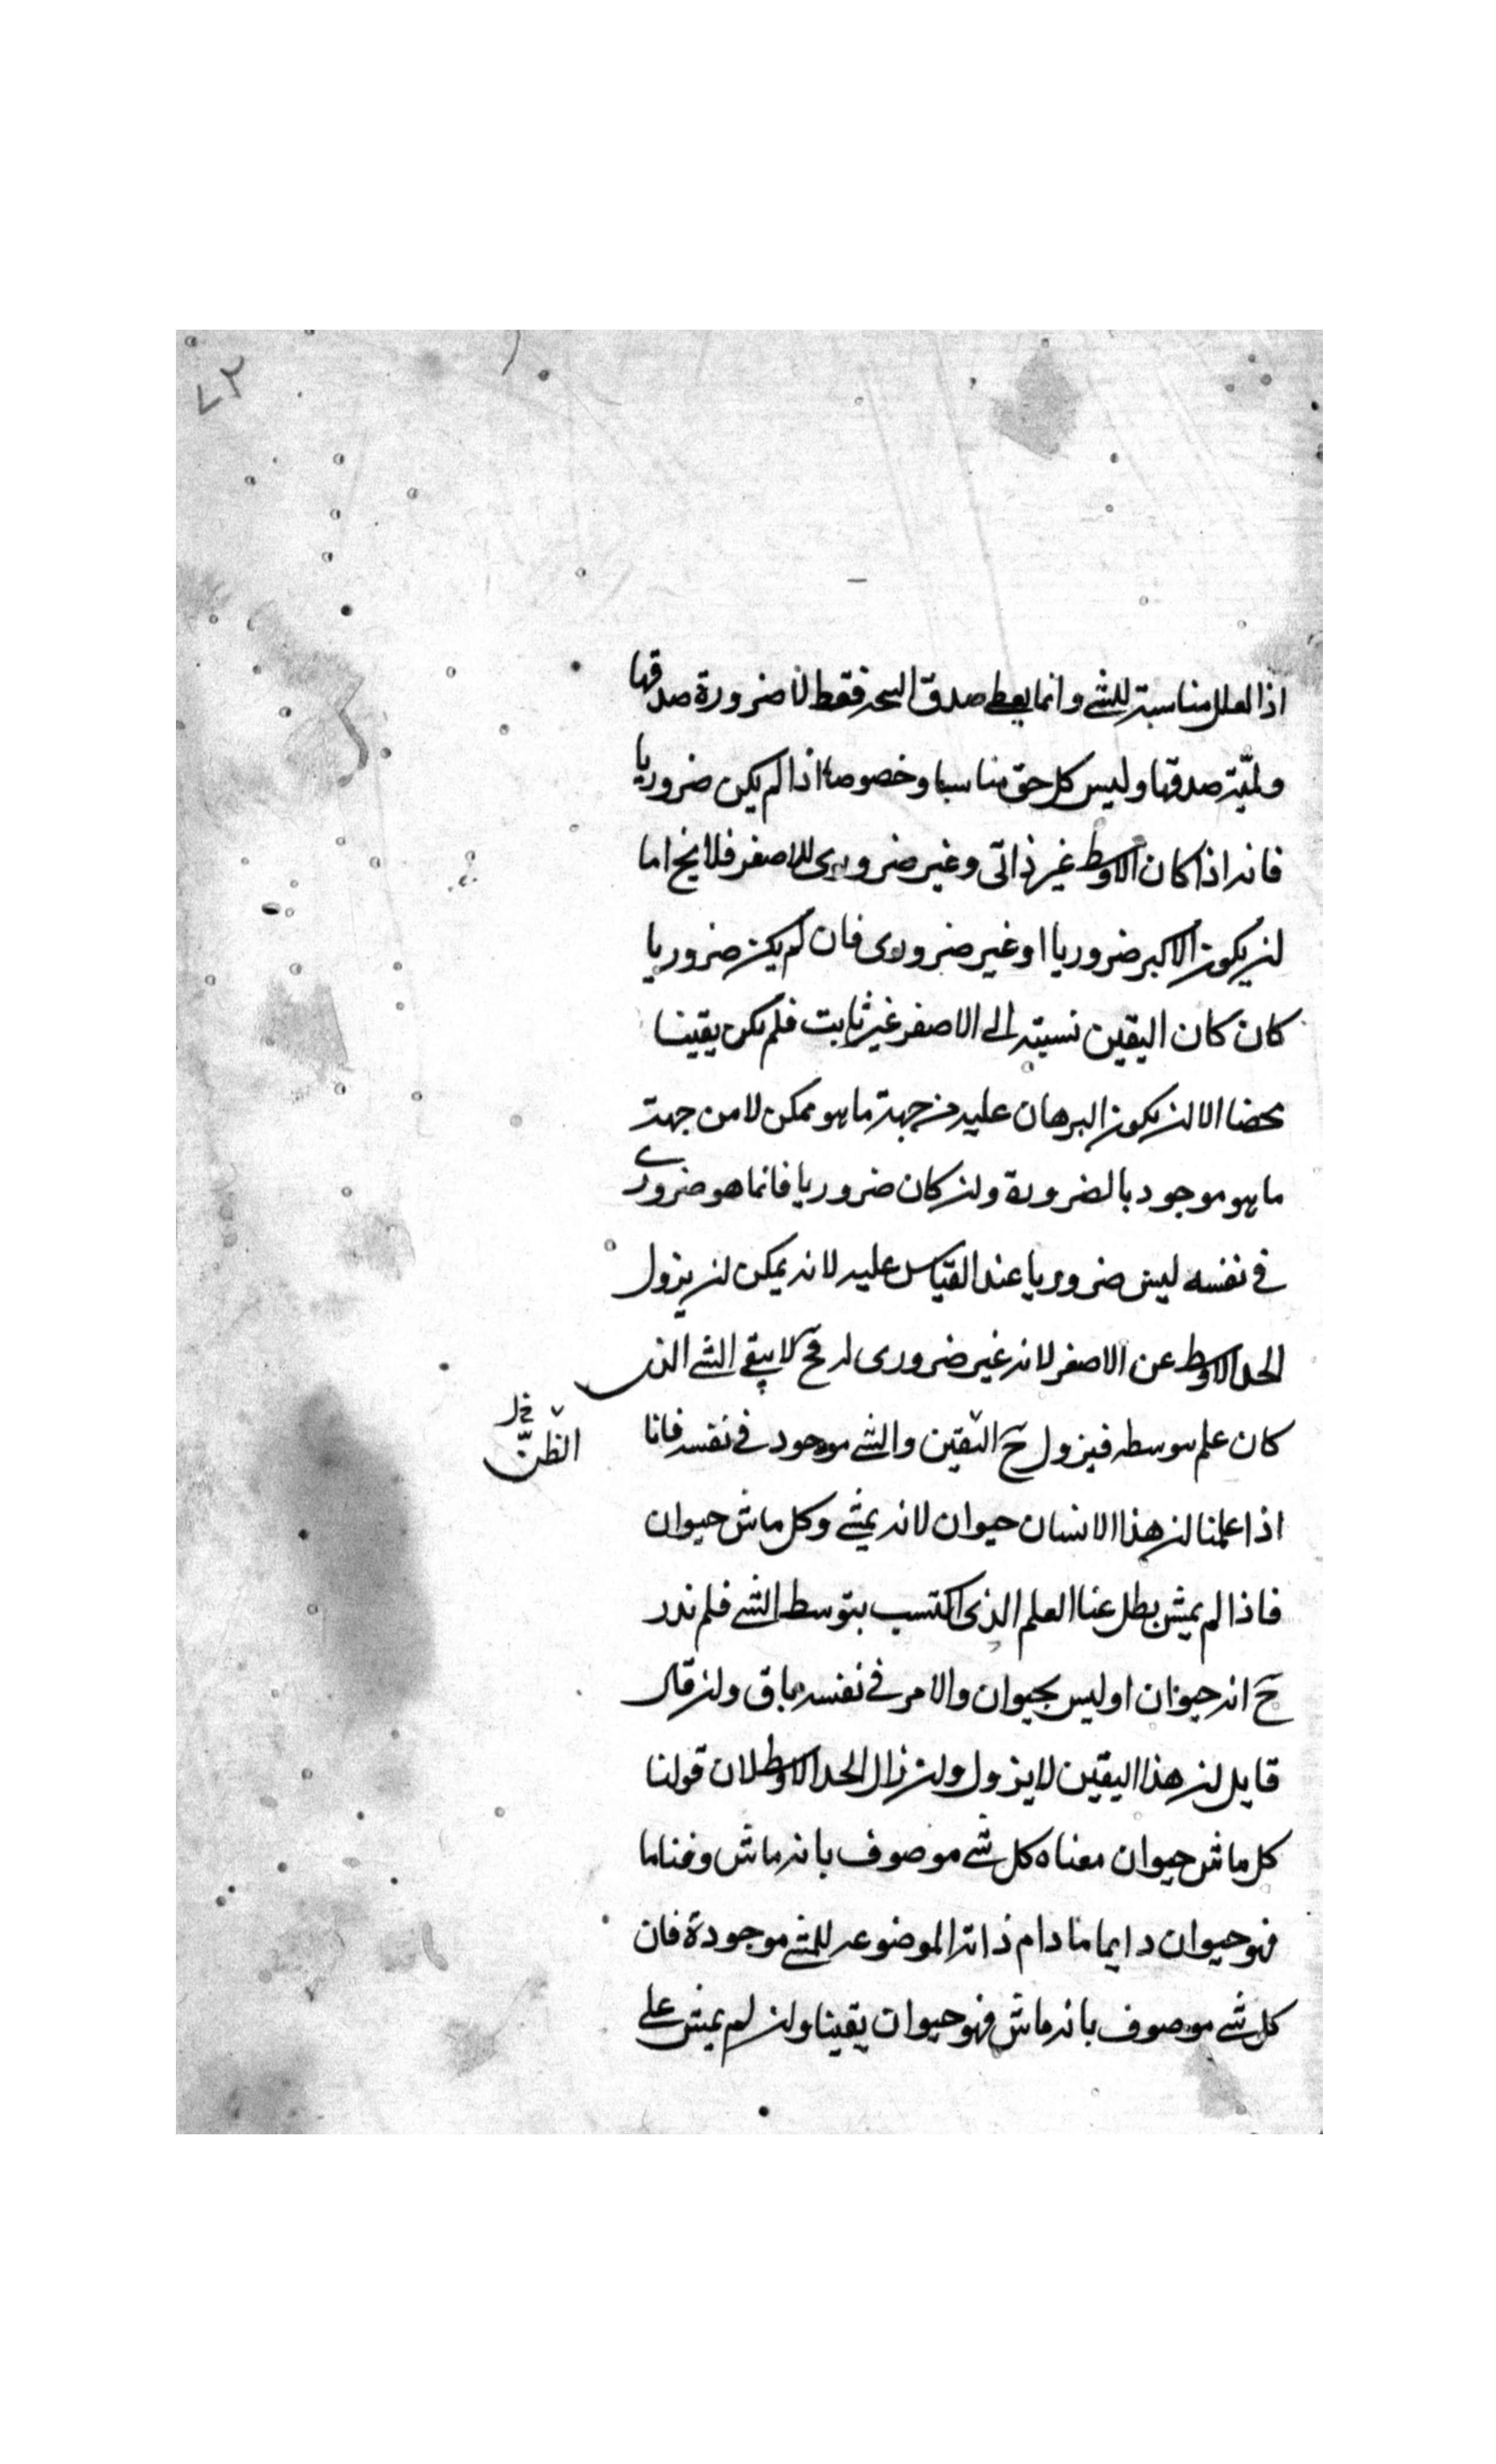 ٧٣
اذ العلل مناسبة للشي وانما يعطي صدق النتيجة فقط لا ضرورة صدقها
ولميّة صدقها وليس كل حق مناسبا وخصوصا اذا لم يكن ضروريا
فانه اذا كان الاوسط غير ذاتي وغير ضروري للاصغر فلا يخ اما
ان يكون الاكبر ضروريا او غير ضروري فان لم يكن ضروريا
كان كان اليقين نسبته الى الاصغر غير ثابت فلم يكن يقينا
محضا الا ان يكون البرهان عليه من جهة ما هو ممكن لا من جهة
ما هو موجود بالضرورة وان كان ضروريا فانما هو ضروري
في نفسه ليس ضروريا عند القياس عليه لانه يمكن ان يزول
الحد الاوسط عن الاصغر لانه غير ضروري له فح لا يبقي الشي الذي
كان علم بتوسطه فيزول ح اليقين والشي موجود في نفسه فانا
الظنّ
اذا علمنا ان هذا الانسان حيوان لانه يمشي وكل ماش حيوان
فاذا لم يمش بطل عنا العلم الذي اكتسب بتوسط الشي فلم ندر
ح انه حيوان او ليس بحيوان والامر في نفسه باق وان قال
قايل ان هذا اليقين لا يزول وان زال الحد الاوسط لان قولنا
كل ماش حيوان معناه كل شي موصوف بانه ماش وقتا ما
فهو حيوان دايما ما دام ذاته الموضوعه للمشي موجودة فان
كل شي موصوف بانه ماش فهو حيوان يقينا وان لم يمش علي